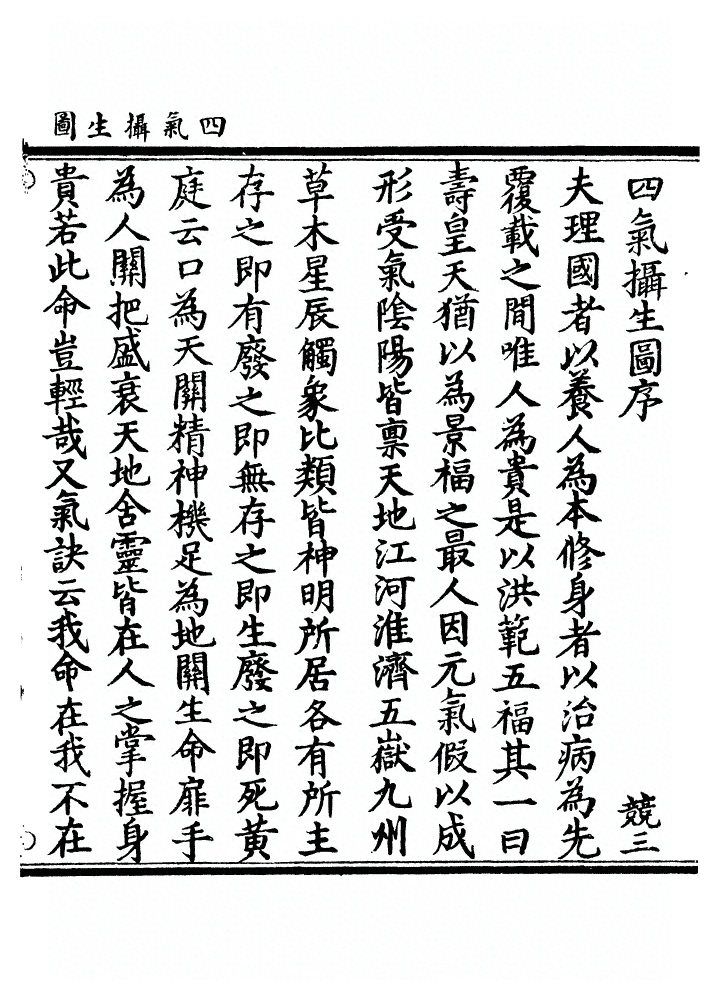 四氣攝生圖
四氣攝生圖序 競三
夫理國者以養人為本修身者以治病為先
覆載之間唯人為貴是以洪範五福其一曰
壽皇天猶以為景福之最人因元氣假以成
形受氣陰陽皆禀天地江河淮濟五嶽九州
草木星辰觸象比類皆神明所居各有所主
存之即有廢之即無存之即生廢之即死黃
庭云口為天關精神機足為地關生命扉手
為人關把盛衰天地含靈皆在人之掌握身
貴若此命豈輕哉又氣訣云我命在我不在